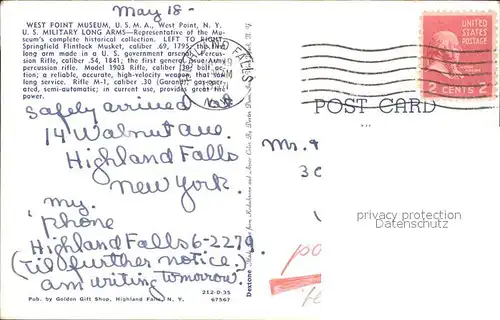 May 18-
WEST POINT MUSEUM, U. S. M. A., West Point, N. Y.
U. S. MILITARY LONG ARMS—Representative of the Mu-
seum's complete historical collection. LEFT TO RIGHT:
Springfield Flintlock Musket, caliber .69, 1795, the first
long arm made in a U. S. government arsenal.
Rifle, caliber .54, 1841; the first general issue Army
percussion rifle. Model 1903 Rifle, caliber .30, bolt ac-
tion; a reliable, accurate, high-velocity weapon, that saw
long service. Rifle M-1, caliber .30 (Garand), gas-oper-
ated, semi-automatic; in current use, provides great fire
power.
FALLS
UNITED STATES
POSTAGE
2 CENTS 2
POST CARD
Safely arrived
14 Walnut ave.
Highland Falls
New York.
my
'phone
Highland Falls 6-2279
(til further notice.)
am writing tomorrow.
Mr.
privacy protection
Datenschutz
po
Pub. by Golden Gift Shop, Highland Falls, N. Y.
212-D-35
67567